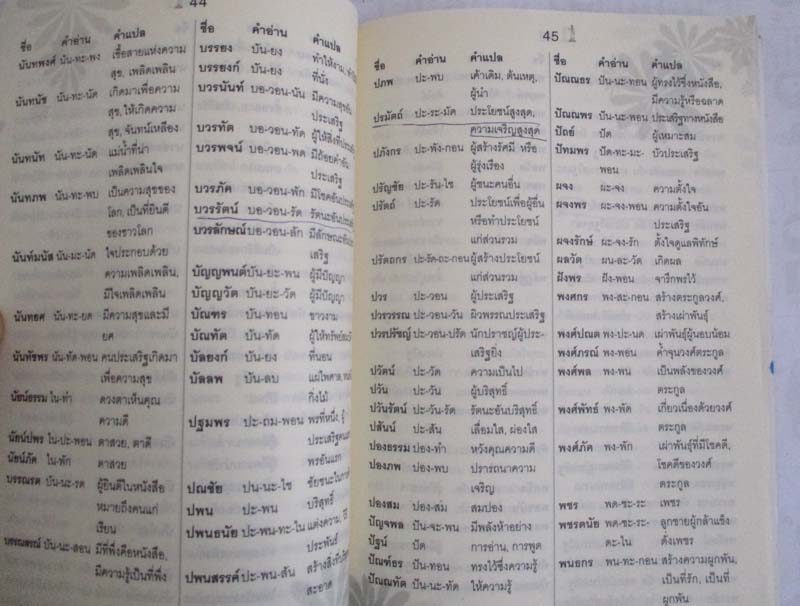 44
ชื่อ คำอ่าน คำแปล
นันทพงศ์ นัน-ทะ-พง เชื้อสายแห่งความ
สุข, เพลิดเพลิน
นันทนัช นัน-ทะ-นัด เกิดมาเพื่อความ
สุข, ให้เกิดความ
สุข, จันทน์เหลือง
นันทนัท นัน-ทะ-นัด แม่น้ำที่น่า
เพลิดเพลินใจ
นันทภพ นัน-ทะ-พบ เป็นความสุขของ
โลก, เป็นที่ยินดี
ของชาวโลก
นันท์มนัส นัน-มะ-นัด ใจประกอบด้วย
ความเพลิดเพลิน,
มีใจเพลิดเพลิน
นันทยศ นัน-ทะ-ยด มีความสุขและมี
ยศ
นันัทพร นัน-ทัด-พอน คนประเสริฐเกิดมา
เพื่อความสุข
นัยน์ธรรม ใน-ทำ ดวงตาเห็นคุณ
ความดี
นัยน์ปพร ใน-ปะ-พอน ตาสวย, ตาดี
นัยน์ภัค ใน-พัก ตาสวย
บรรณรต บัน-นะ-รด ผู้ยินดีในหนังสือ
หมายถึงคนแก่
เรียน
บรรณสรณ์ บัน-นะ-สอน มีที่พึ่งคือหนังสือ,
มีความรู้เป็นที่พึ่ง
ชื่อ คำอ่าน คำแปล
บรรยง บัน-ยง ทำให้งาม,
บรรยงก์ บัน-ยง ที่นั่ง
บวรนันท์ บอ-วอน-นัน มีความสุขอัน
ประเสริฐ
บวรทัต บอ-วอน-ทัด ผู้ให้สิ่งที่
บวรพจน์ บอ-วอน-พด มีถ้อยคำอัน
ประเสริฐ
บวรภัค บอ-วอน-พัก มีโชคอัน
บวรรัตน์ บอ-วอน-รัด รัตนะอัน
บวรลักษณ์ บอ-วอน-ลัก มีลักษณะอัน
เสริฐ
บัญญพนต์ บัน-ยะ-พน ผู้มีปัญญา
บัญญวัต บัน-ยะ-วัด ผู้มีปัญญา
บัณฑร บัน-ทอน ขาวงาม
บัณทัต บัน-ทัด ผู้ให้ทรัพย์
บัลยงก์ บัน-ยง ที่นอน
บัลลพ บัน-ลบ แผ่ไพศาล,
กิ่งไม้
ปฐมพร ปะ-ถม-พอน พรที่หนึ่ง, ผู้
ประเสริฐ
พรอันแรก
ปณชัย ปน-นะ-ไช ชัยชนะในการ
ปพน ปะ-พน บริสุทธิ์
ปพนธนัย ปะ-พน-ทะ-ไน แต่งความ,
ประพันธ์
ปพนสรรค์ ปะ-พน-สัน สร้างสิ่ง
สะอาด
45
ชื่อ คำอ่าน คำแปล
ปภพ ปะ-พบ เค้าเดิม, ต้นเหตุ,
ผู้นำ
ปรมัตถ์ ปะ-ระ-มัด ประโยชน์สูงสุด,
ความเจริญสูงสุด
ปภังกร ปะ-พัง-กอน ผู้สร้างรัศมี หรือ
ผู้รุ่งเรือง
ปรัญชัย ปะ-รัน-ไช ผู้ชนะคนอื่น
ปรัตถ์ ปะ-รัด ประโยชน์เพื่อผู้อื่น
หรือทำประโยชน์
แก่ส่วนรวม
ปรัตถกร ปะ-รัด-ถะ-กอน ผู้สร้างประโยชน์
แก่ส่วนรวม
ปวร ปะ-วอน ผู้ประเสริฐ
ปวรวรรณ ปะ-วอน-วัน ผิวพรรณประเสริฐ
ปวรปรัชญ์ ปะ-วอน-ปรัด นักปราชญ์ผู้ประ-
เสริฐยิ่ง
ปวัตน์ ปะ-วัด ความเป็นไป
ปวัน ปะ-วัน ผู้บริสุทธิ์
ปวันรัตน์ ปะ-วัน-รัด รัตนะอันบริสุทธิ์
ปสันน์ ปะ-สัน เลื่อมใส, ผ่องใส
ปองธรรม ปอง-ทำ หวังคุณความดี
ปองภพ ปอง-พบ ปรารถนาความ
เจริญ
ปองสม ปอง-สม สมปอง
ปัญจพล ปัน-จะ-พน มีพลังห้าอย่าง
ปัฐน์ ปัด การอ่าน, การพูด
ปัณฑ์ธร ปัน-ทอน ทรงไว้ซึ่งความรู้
ปัณณทัต ปัน-นะ-ทัด ให้ความรู้
ชื่อ คำอ่าน คำแปล
ปัณณธร ปัน-นะ-ทอน ผู้ทรงไว้ซึ่งหนังสือ,
มีความรู้หรือฉลาด
ปัณณพร ปัน-นะ-พอน ประเสริฐทางหนังสือ
ปัถย์ ปัด ผู้เหมาะสม
ปัทมพร ปัด-ทะ-มะ- บัวประเสริฐ
พอน
ผจง ผะ-จง ความตั้งใจ
ผจงพร ผะ-จง-พอน ความตั้งใจอัน
ประเสริฐ
ผจงรักษ์ ผะ-จง-รัก ตั้งใจดูแลพิทักษ์
ผลวัตุ ผน-ละ-วัด เกิดผล
ฝังพร ฝัง-พอน จารึกพรไว้
พงศกร พง-สะ-กอน สร้างตระกูลวงศ์,
สร้างเผ่าพันธุ์
พงศ์ปณต พง-ปะ-นด เผ่าพันธุ์ผู้นอบน้อม
พงศ์ภรณ์ พง-พอน ค้ำจุนวงศ์ตระกูล
พงศ์พล พง-พน เป็นพลังของวงศ์
ตระกูล
พงศ์พัทธ์ พง-พัด เกี่ยวเนื่องด้วยวงศ์
ตระกูล
พงศ์ภัค พง-พัก เผ่าพันธุ์ที่มีโชคดี,
โชคดีของวงศ์
ตระกูล
พชร พด-ชะ-ระ เพชร
พชรดนัย พด-ชะ-ระ- ลูกชายผู้กล้าแข็ง
ดะ-ไน ดั่งเพชร
พนธกร พน-ทะ-กอน สร้างความผูกพัน,
เป็นที่รัก, เป็นที่
ผูกพัน